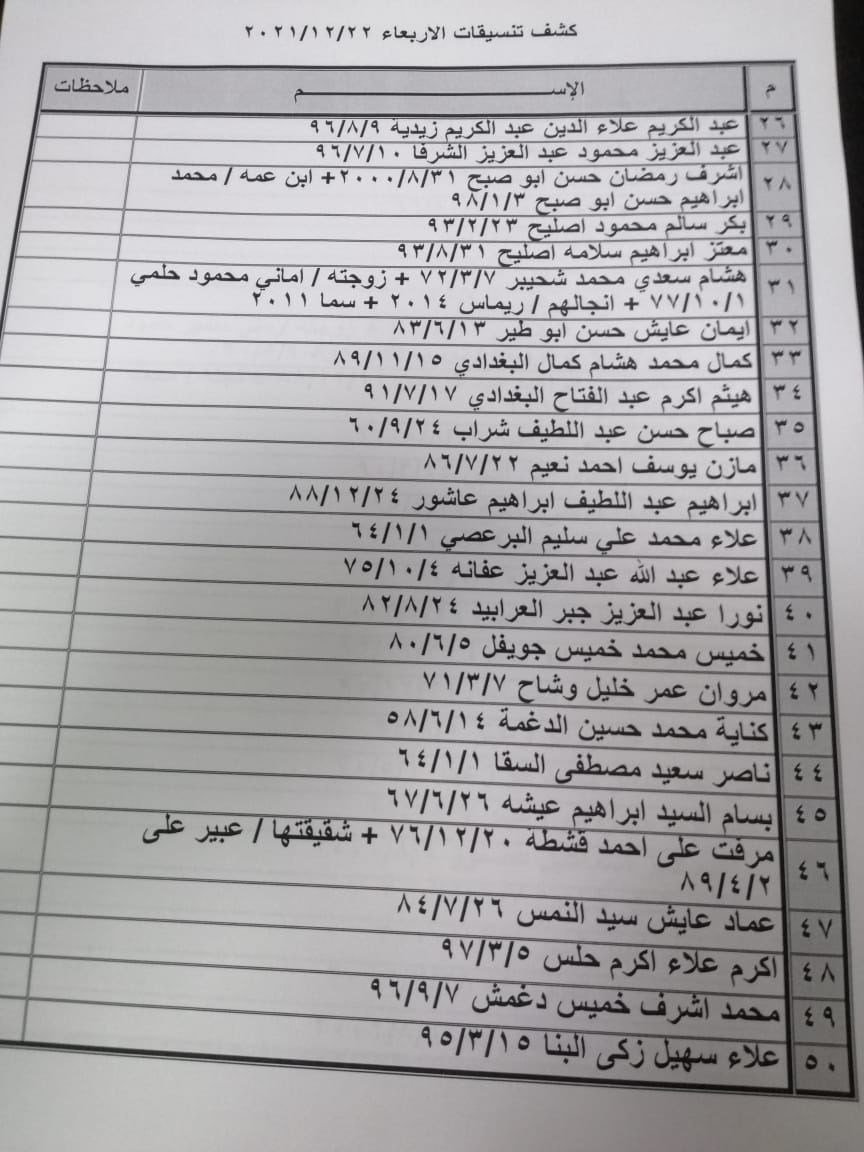 كشف تنسيقات الاربعاء ٢٠٢١/١٢/٢٢
م الإســـــــم ملاحظات
٢٦ عبد الكريم علاء الدين عبد الكريم زيدية ٩٦/٨/٩
٢٧ عبد العزيز محمود عبد العزيز الشرفا ٩٦/٧/١٠
٢٨ اشرف رمضان حسن ابو صبح ٢٠٠٠/٨/٣١ + ابن عمه / محمد
ابراهيم حسن ابو صبح ٩٨/١/٣
٢٩ بكر سالم محمود اصليح ٩٣/٢/٢٣
٣٠ معتز ابراهيم سلامه اصليح ٩٣/٨/٣١
٣١ هشام سعدي محمد شحيبر ٧٢/٣/٧ + زوجته / اماني محمود حلمي
٧٧/١٠/١ + انجالهم / ريماس ٢٠١٤ + سما ٢٠١١
٣٢ ايمان عايش حسن ابو طير ٨٣/٦/١٣
٣٣ كمال محمد هشام كمال البغدادي ٨٩/١١/١٥
٣٤ هيثم اكرم عبد الفتاح البغدادي ٩١/٧/١٧
٣٥ صباح حسن عبد اللطيف شراب ٦٠/٩/٢٤
٣٦ مازن يوسف احمد نعيم ٨٦/٧/٢٢
٣٧ ابراهيم عبد اللطيف ابراهيم عاشور ٨٨/١٢/٢٤
٣٨ علاء محمد علي سليم البرعصي ٦٤/١/١
٣٩ علاء عبد الله عبد العزيز عفانه ٧٥/١٠/٤
٤٠ نورا عبد العزيز جبر العرابيد ٨٢/٨/٢٤
٤١ خميس محمد خميس جويفل ٨٠/٦/٥
٤٢ مروان عمر خليل وشاح ٧١/٣/٧
٤٣ كناية محمد حسين الدغمة ٥٨/٦/١٤
٤٤ ناصر سعيد مصطفى السقا ٦٤/١/١
٤٥ بسام السيد ابراهيم عيشه ٦٧/٦/٢٦
٤٦ مرفت على احمد قشطة ٧٦/١٢/٢٠ + شقيقتها / عبير على
٨٩/٤/٢
٤٧ عماد عايش سيد النمس ٨٤/٧/٢٦
٤٨ اكرم علاء اكرم حلس ٩٧/٣/٥
٤٩ محمد اشرف خميس دغمش ٩٦/٩/٧
٥٠ علاء سهيل زكى البنا ٩٥/٣/١٥